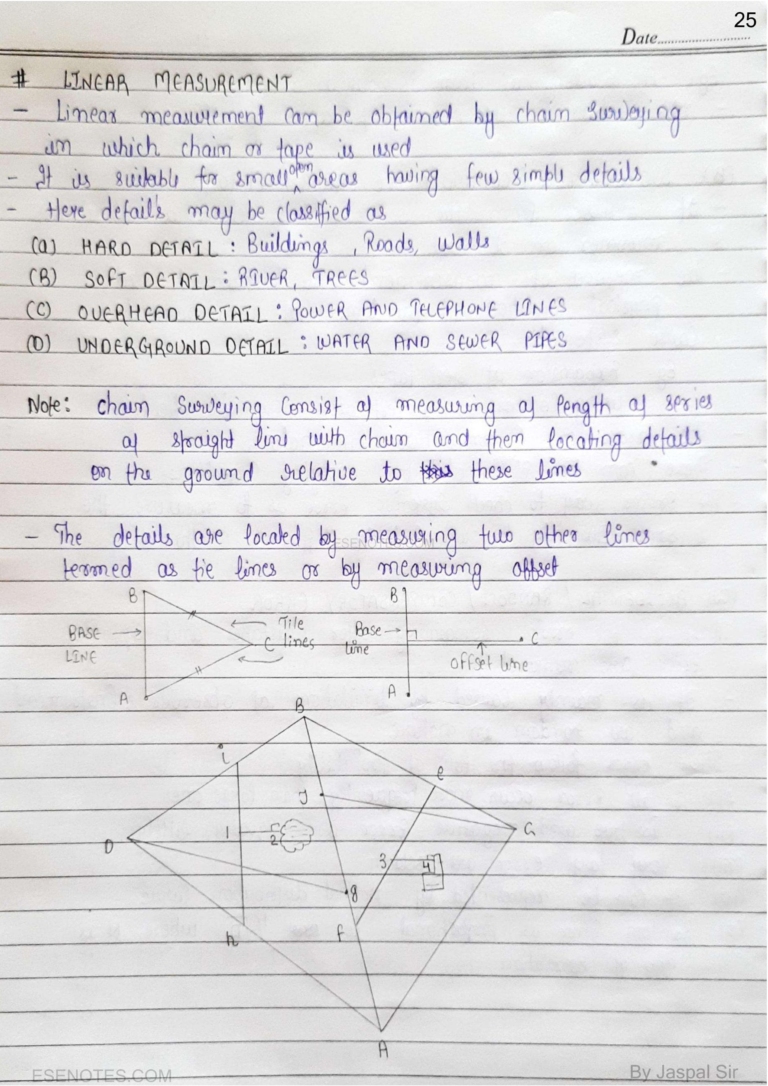 25
Date
# LINEAR MEASUREMENT
- Linear measurement can be obtained by chain surveying
in which chain or tape is used
- It is suitable for small open areas having few simple details
- Here details may be classified as
(a) HARD DETAIL : Buildings , Roads, Walls
(B) SOFT DETAIL : RIVER, TREES
(C) OVERHEAD DETAIL : POWER AND TELEPHONE LINES
(D) UNDERGROUND DETAIL : WATER AND SEWER PIPES
Note: chain Surveying Consist of measuring of length of series
of straight line with chain and then locating details
on the ground relative to these lines
- The details are located by measuring two other lines
ESENOTES.COM
termed as tie lines or by measuring offset
B
BASE
LINE
Tile
lines
C
A
B
Base
line
C
offset line
A
B
i
e
J
D
1
2
G
3
4
g
f
h
A
ESENOTES.COM
By Jaspal Sir